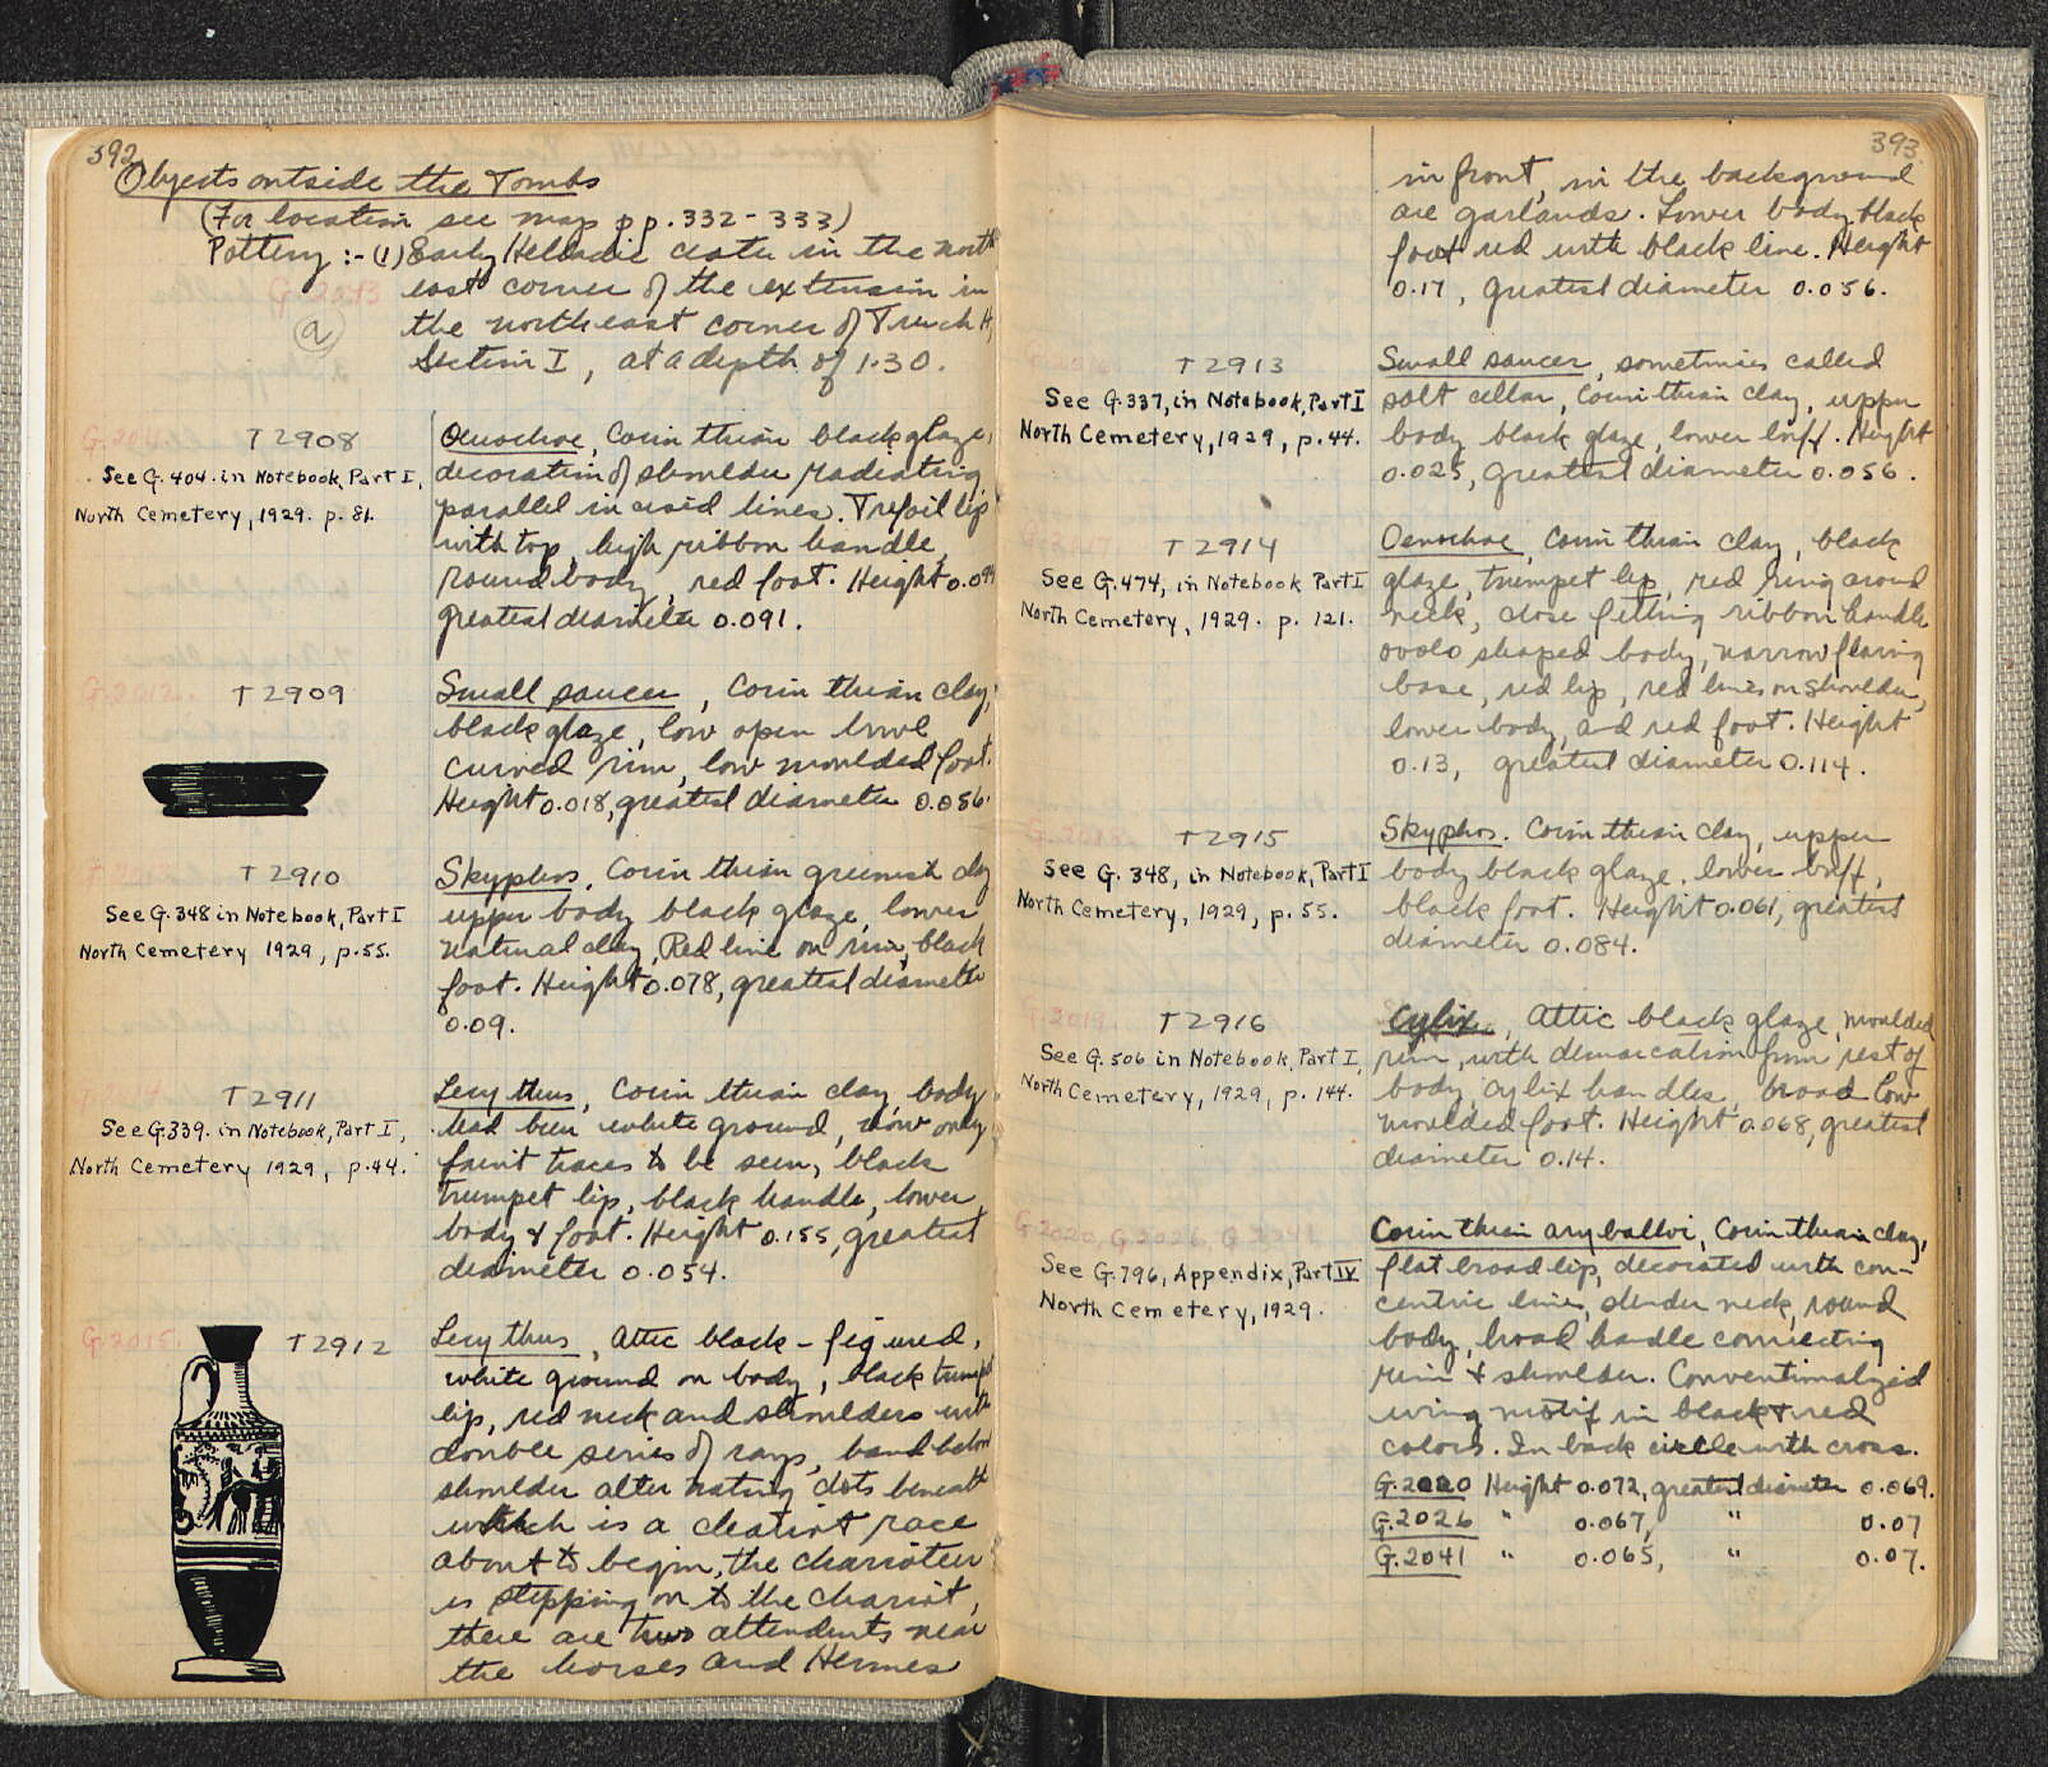 392
Objects outside the Tombs
(For location see map pp. 332-333)
Pottery :- (1) Early Helladic in the north
east corner of the extension in
G.2043
the northeast corner of Trench H,
(a)
Section I, at a depth of 1.30.
T 2908
See G. 404. in Notebook, Part I,
North Cemetery, 1929. p. 81.
Oenochoe, Corinthian black glaze,
decoration of shoulder radiating
parallel incised lines. Trefoil lip
with top, high ribbon handle,
round body, red foot. Height 0.094
greatest diameter 0.091.
G.2012.
T 2909
Small saucer, Corinthian clay,
black glaze, low open bowl
curved rim, low moulded foot.
Height 0.018, greatest diameter 0.056.
T 2910
See G. 348 in Notebook, Part I
North Cemetery 1929, p. 55.
Skyphos, Corinthian greenish clay
upper body black glaze, lower
natural clay, Red line on rim, black
foot. Height 0.078, greatest diameter
0.09.
T 2911
See G. 339. in Notebook, Part I,
North Cemetery 1929, p. 44.
Lecythus, Corinthian clay, body
had been white ground, now only
faint traces to be seen, black
trumpet lip, black handle, lower
body & foot. Height 0.155, greatest
diameter 0.054.
G.2015.
T 2912
Lecythus, Attic black-figured,
white ground on body, black trumpet
lip, red neck and shoulders with
double series of rays, band below
shoulder alternating dots beneath
which is a chariot race
about to begin, the charioteer
is stepping on to the chariot,
there are two attendents near
the horses and Hermes
393.
in front, in the background
are garlands. Lower body black
foot red with black line. Height
0.17, greatest diameter 0.056.
T 2913
See G. 337, in Notebook, Part I
North Cemetery, 1929, p. 44.
Small saucer, sometimes called
salt cellar, Corinthian clay, upper
body black glaze, lower buff. Height
0.025, greatest diameter 0.056.
G.2017
T 2914
See G. 474, in Notebook Part I
North Cemetery, 1929. p. 121.
Oenochoe, Corinthian clay, black
glaze, trumpet lip, red ring around
neck, close fitting ribbon handle
ovolo shaped body, narrow flaring
base, red lip, red lines on shoulder,
lower body, and red foot. Height
0.13, greatest diameter 0.114.
G.2018.
T 2915
See G. 348, in Notebook, Part I
North Cemetery, 1929, p. 55.
Skyphos. Corinthian clay, upper
body black glaze, lower buff,
black foot. Height 0.061, greatest
diameter 0.084.
G.2019.
T 2916
See G. 506 in Notebook, Part I,
North Cemetery, 1929, p. 144.
Cylix, Attic black glaze, moulded
rim, with demarcation from rest of
body, cylix handles, broad low
moulded foot. Height 0.068, greatest
diameter 0.14.
G.2020, G.2026, G.2041
See G. 796, Appendix, Part IV
North Cemetery, 1929.
Corinthian aryballoi, Corinthian clay,
flat broad lip, decorated with con-
centric lines, slender neck, round
body, broad handle connecting
rim & shoulder. Conventionalized
wing motif in black & red
colors. In back circle with cross.
G.2020 Height 0.072, greatest diameter 0.069.
G.2026 " 0.067, " 0.07
G.2041 " 0.065, " 0.07.